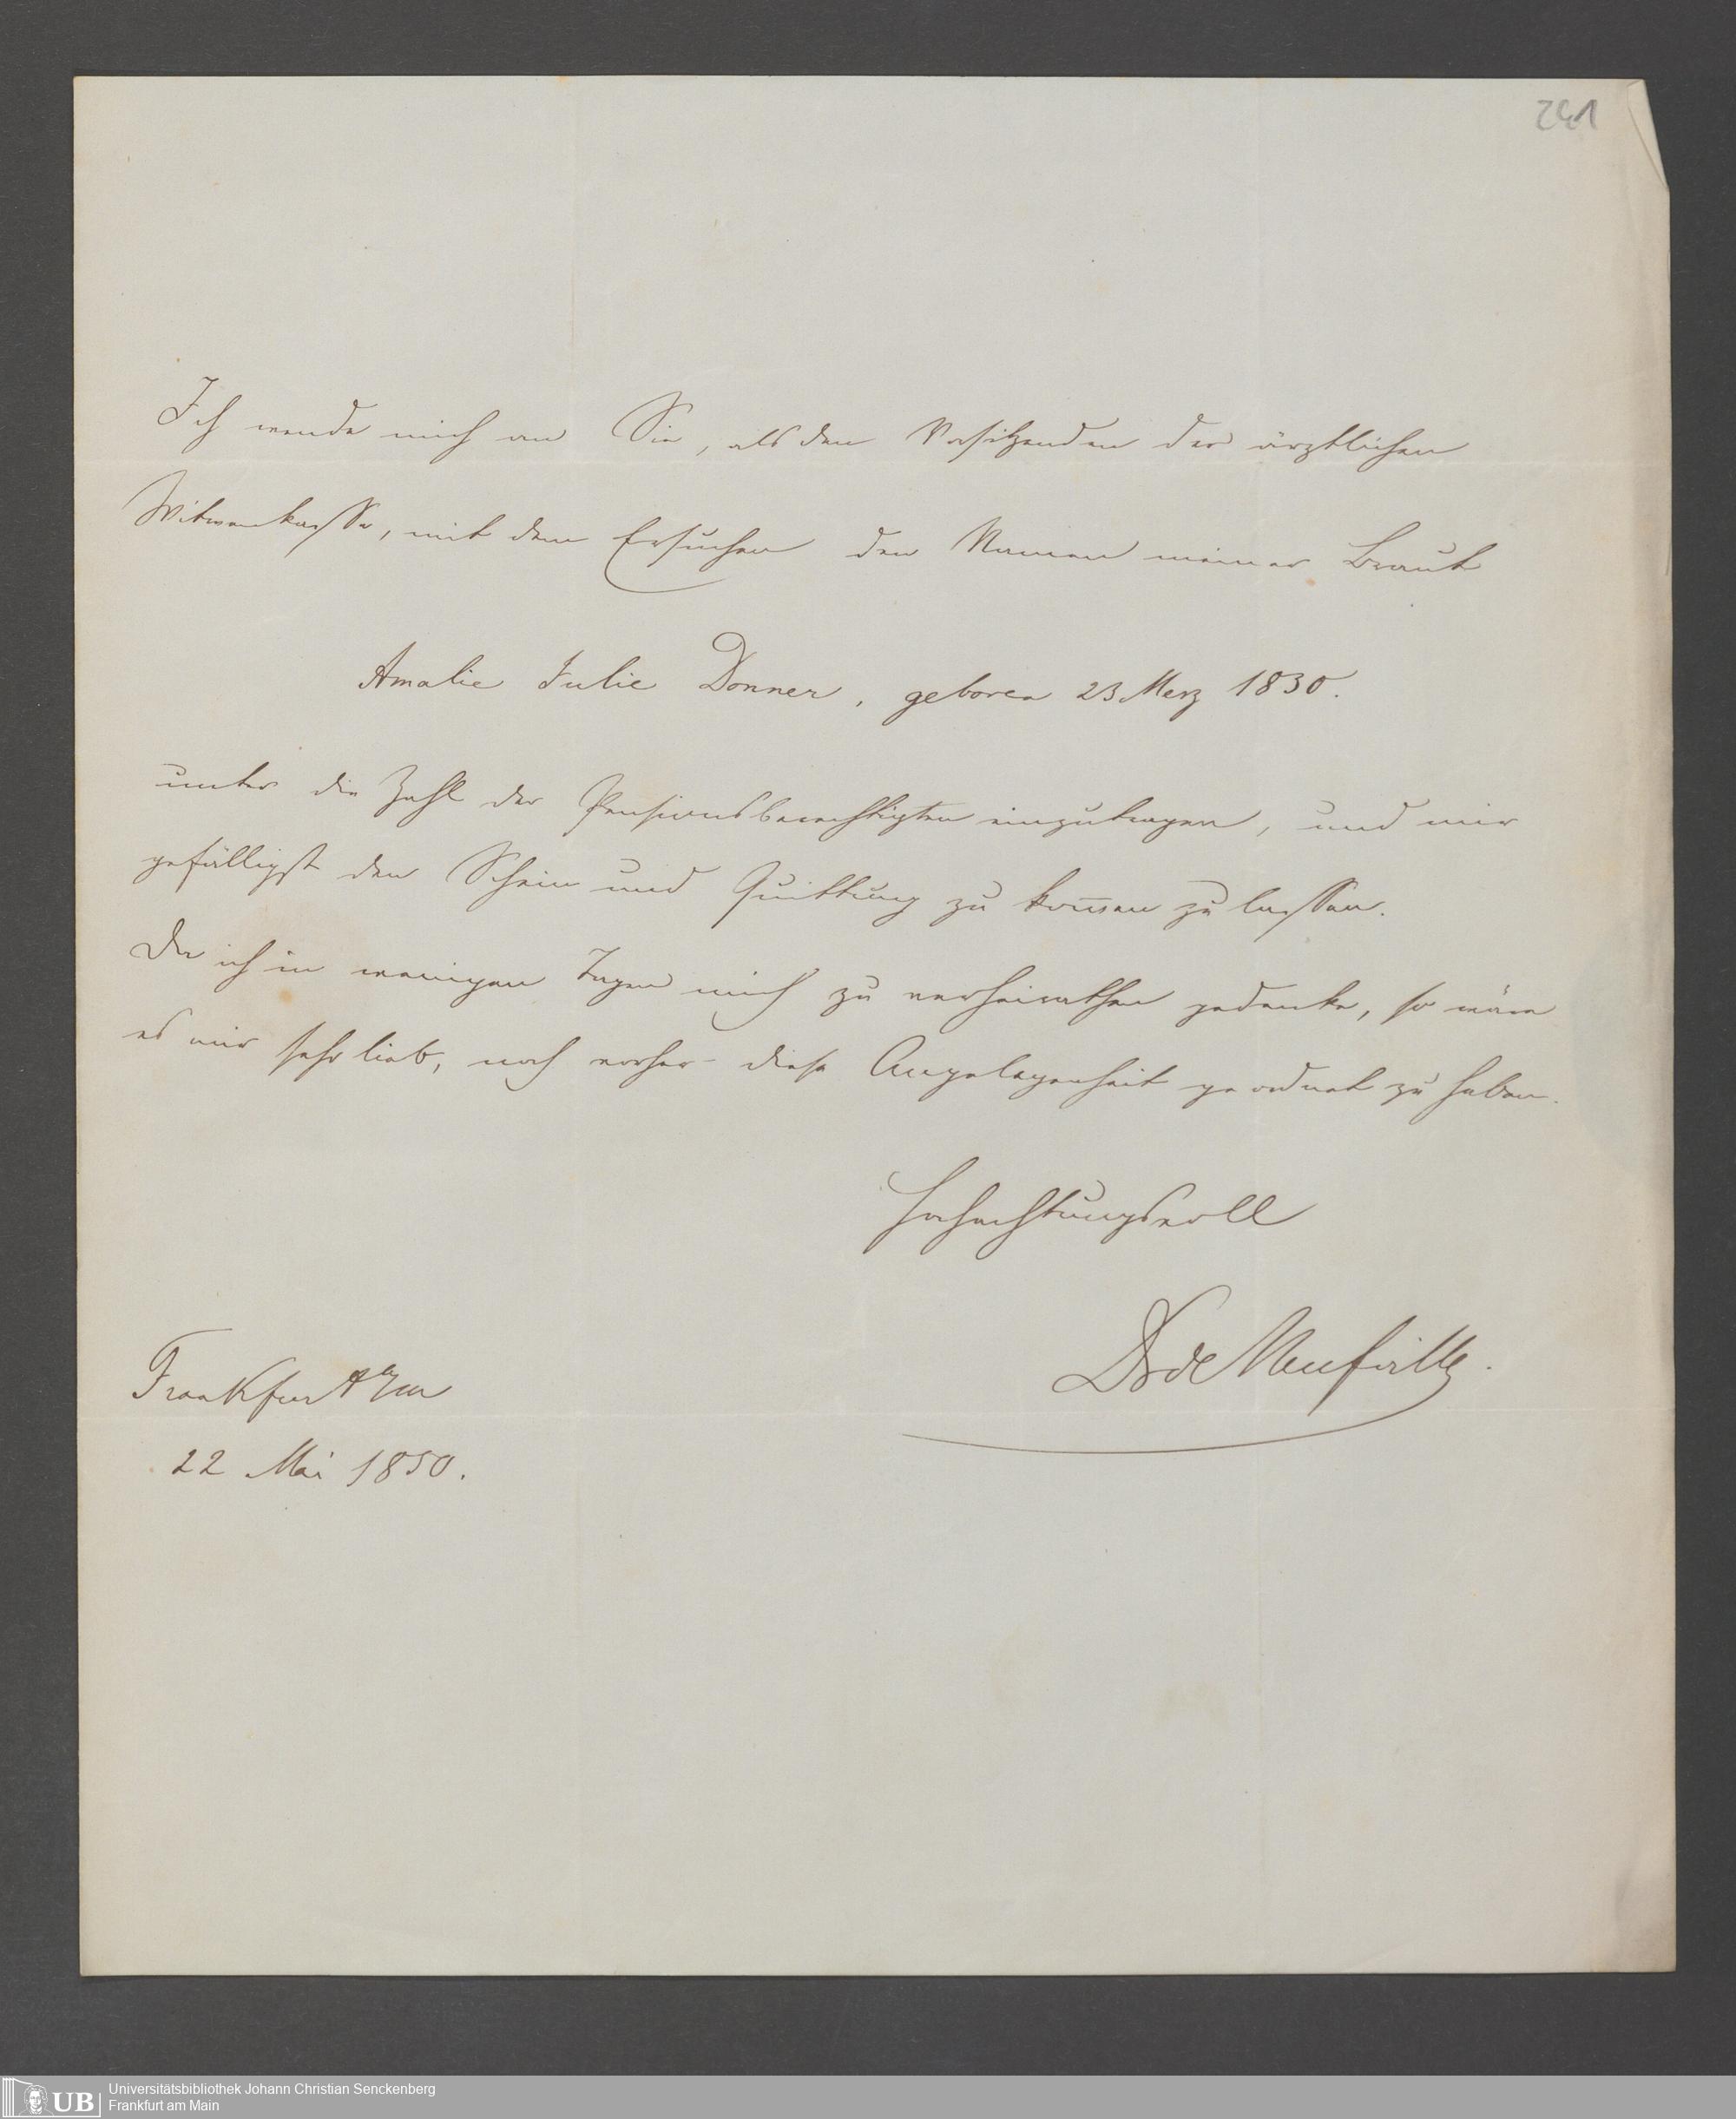 241
Ich wende mich an Sie, als den Vorsitzenden der ärztlichen
Witwenkasse, mit dem Ersuchen den Namen meiner Braut
Amalie Julie Donner, geboren 23 Merz 1830.
unter die Zahl der Pensionsberechtigten einzutragen, und mir
gefälligst den Schein und Quittung zu kom̄en zu lassen.
Da ich in wenigen Tagen mich zu verheirathen gedenke, so wäre
es mir sehr lieb, noch vorher diese Angelegenheit geordnet zu haben.
Hochachtungsvoll
Dr de Neufville.
Frankfurt a/m
22 Mai 1850.
UB
Universitätsbibliothek Johann Christian Senckenberg
Frankfurt am Main